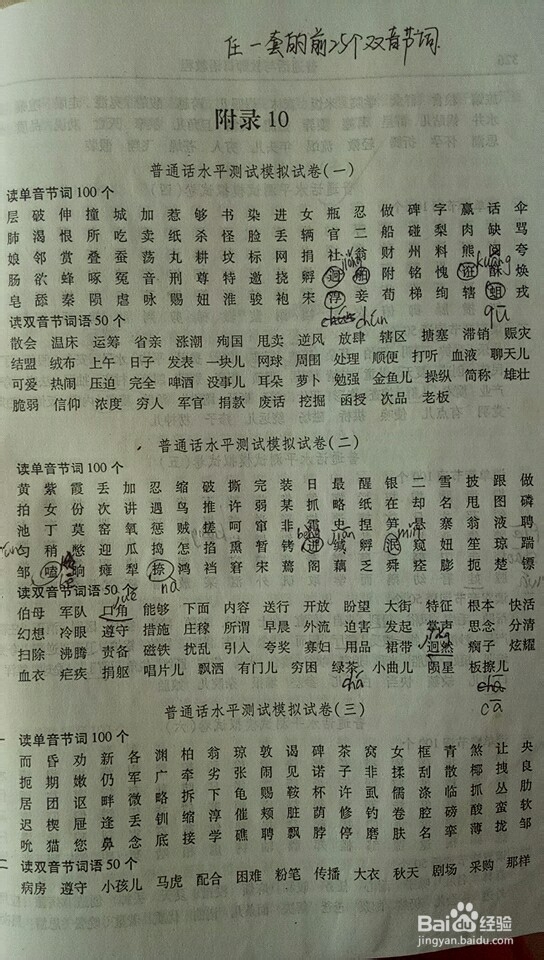 任一套的前25个双音节词
附录10
普通话水平测试模拟试卷(一)
读单音节词100个
层 破 伸 撞 城 加 惹 够 书 染 进 女 瓶 忍 做 碑 字 赢 话 伞
肺 渴 恨 所 吃 卖 纸 杀 怪 脸 丢 辆 官 二 船 碰 梨 肉 缺 骂
娘 邻 赏 叠 蚕 荡 丸 耕 坟 标 网 捐 社 翁 财 州 料 熊 阅 夸
jiǒng kuāng
肠 欲 蜂 啄 冤 音 刑 尊 特 邀 挠 孵 厢 附 铭 愧 酥 焕
皂 舔 秦 陨 虐 咏 赐 妞 淮 骏 袍 宋 妾 荀 梯 绚 辖 蛆 戎
chún qū
读双音节词语50个
散会 温床 运筹 省亲 涨潮 殉国 甩卖 逆风 放肆 辖区 搪塞 滞销 赈灾
结盟 绒布 上午 日子 发表 一块儿 网球 周围 处理 顺便 打听 血液 聊天儿
可爱 热闹 压迫 完全 啤酒 没事儿 耳朵 萝卜 勉强 金鱼儿 操纵 简称 雄壮
脆弱 信仰 浓度 穷人 军官 捐款 废话 挖掘 函授 次品 老板
普通话水平测试模拟试卷(二)
读单音节词100个
黄 紫 霞 丢 加 忍 缩 破 撕 完 装 日 最 醒 银 二 雪 披 跟 做
拍 女 份 次 讲 遇 鸟 推 许 弱 某 抓 略 纸 在 却 名 甩 图 磷
池 丁 莫 窑 氧 惩 贼 搓 呵 窜 非 霜 史 捏 笋 悬 寨 翁 液 聘
bèng jiān mǐn
匀 稍 憋 迎 瓜 捣 怎 掐 熏 暂 铐 迸 缄 孵 泯 窥 妞 笙 琼 踹
邹 嗑 晌 雍 犁 捺 鸿 裆 窘 宋 蒿 阁 藕 乏 舜 痉 膨 扼 楚 镖
nà
读双音节词语50个
jué
伯母 军队 口角 能够 下面 内容 送行 开放 盼望 大街 特征 根本 快活
幻想 冷眼 遵守 措施 庄稼 所谓 早晨 外流 迫害 发起 掌声 思念 分清
扫除 沸腾 责备 磁铁 扰乱 引人 夸奖 寡妇 用品 裙带 迥然 痫子 炫耀
血衣 疟疾 捐躯 唱片儿 飘洒 有门儿 穷困 绿茶 小曲儿 陨星 板擦儿
chá
cā
普通话水平测试模拟试卷(三)
读单音节词100个
而 昏 劝 新 各 渊 柏 翁 琼 敦 谒 碑 茶 窝 女 框 青 煞 让 央
扼 期 嫩 仍 军 广 牵 劣 张 闹 见 诺 子 非 揉 刮 散 椰 拽 良
居 团 讴 畔 微 略 拆 下 龟 赐 鞍 杯 许 虱 儒 涤 临 抓 丛 肋
迟 楔 屉 逢 丢 钏 缩 淳 催 颊 脏 荫 修 钓 卷 腔 磅 酸 蛮 软
吮 猫 您 鼻 念 底 接 学 礁 聘 飘 脖 停 磨 肤 名 孪 薄 拢 邹
二 读双音节词语50个
病房 遵守 小孩儿 马虎 配合 困难 粉笔 传播 大衣 秋天 剧场 采购 那样
Bai 百度经验
jingyan.baidu.com